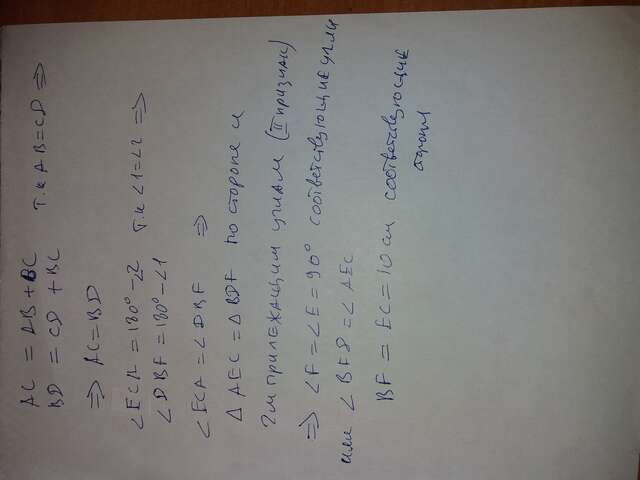 AC = AB + BC
BD = CD + BC т.к AB = CD ⇒
⇒ AC = BD
∠ECA = 180° - ∠2 т.к ∠1 = ∠2 ⇒
∠DBF = 180° - ∠1
∠ECA = ∠DBF ⇒
Δ AEC = Δ BDF по стороне и
2м прилежащим углам (II признак)
⇒ ∠F = ∠E = 90° соответствующие углы
или ∠BFD = ∠AEC
BF = EC = 10 см соответствующие
стороны